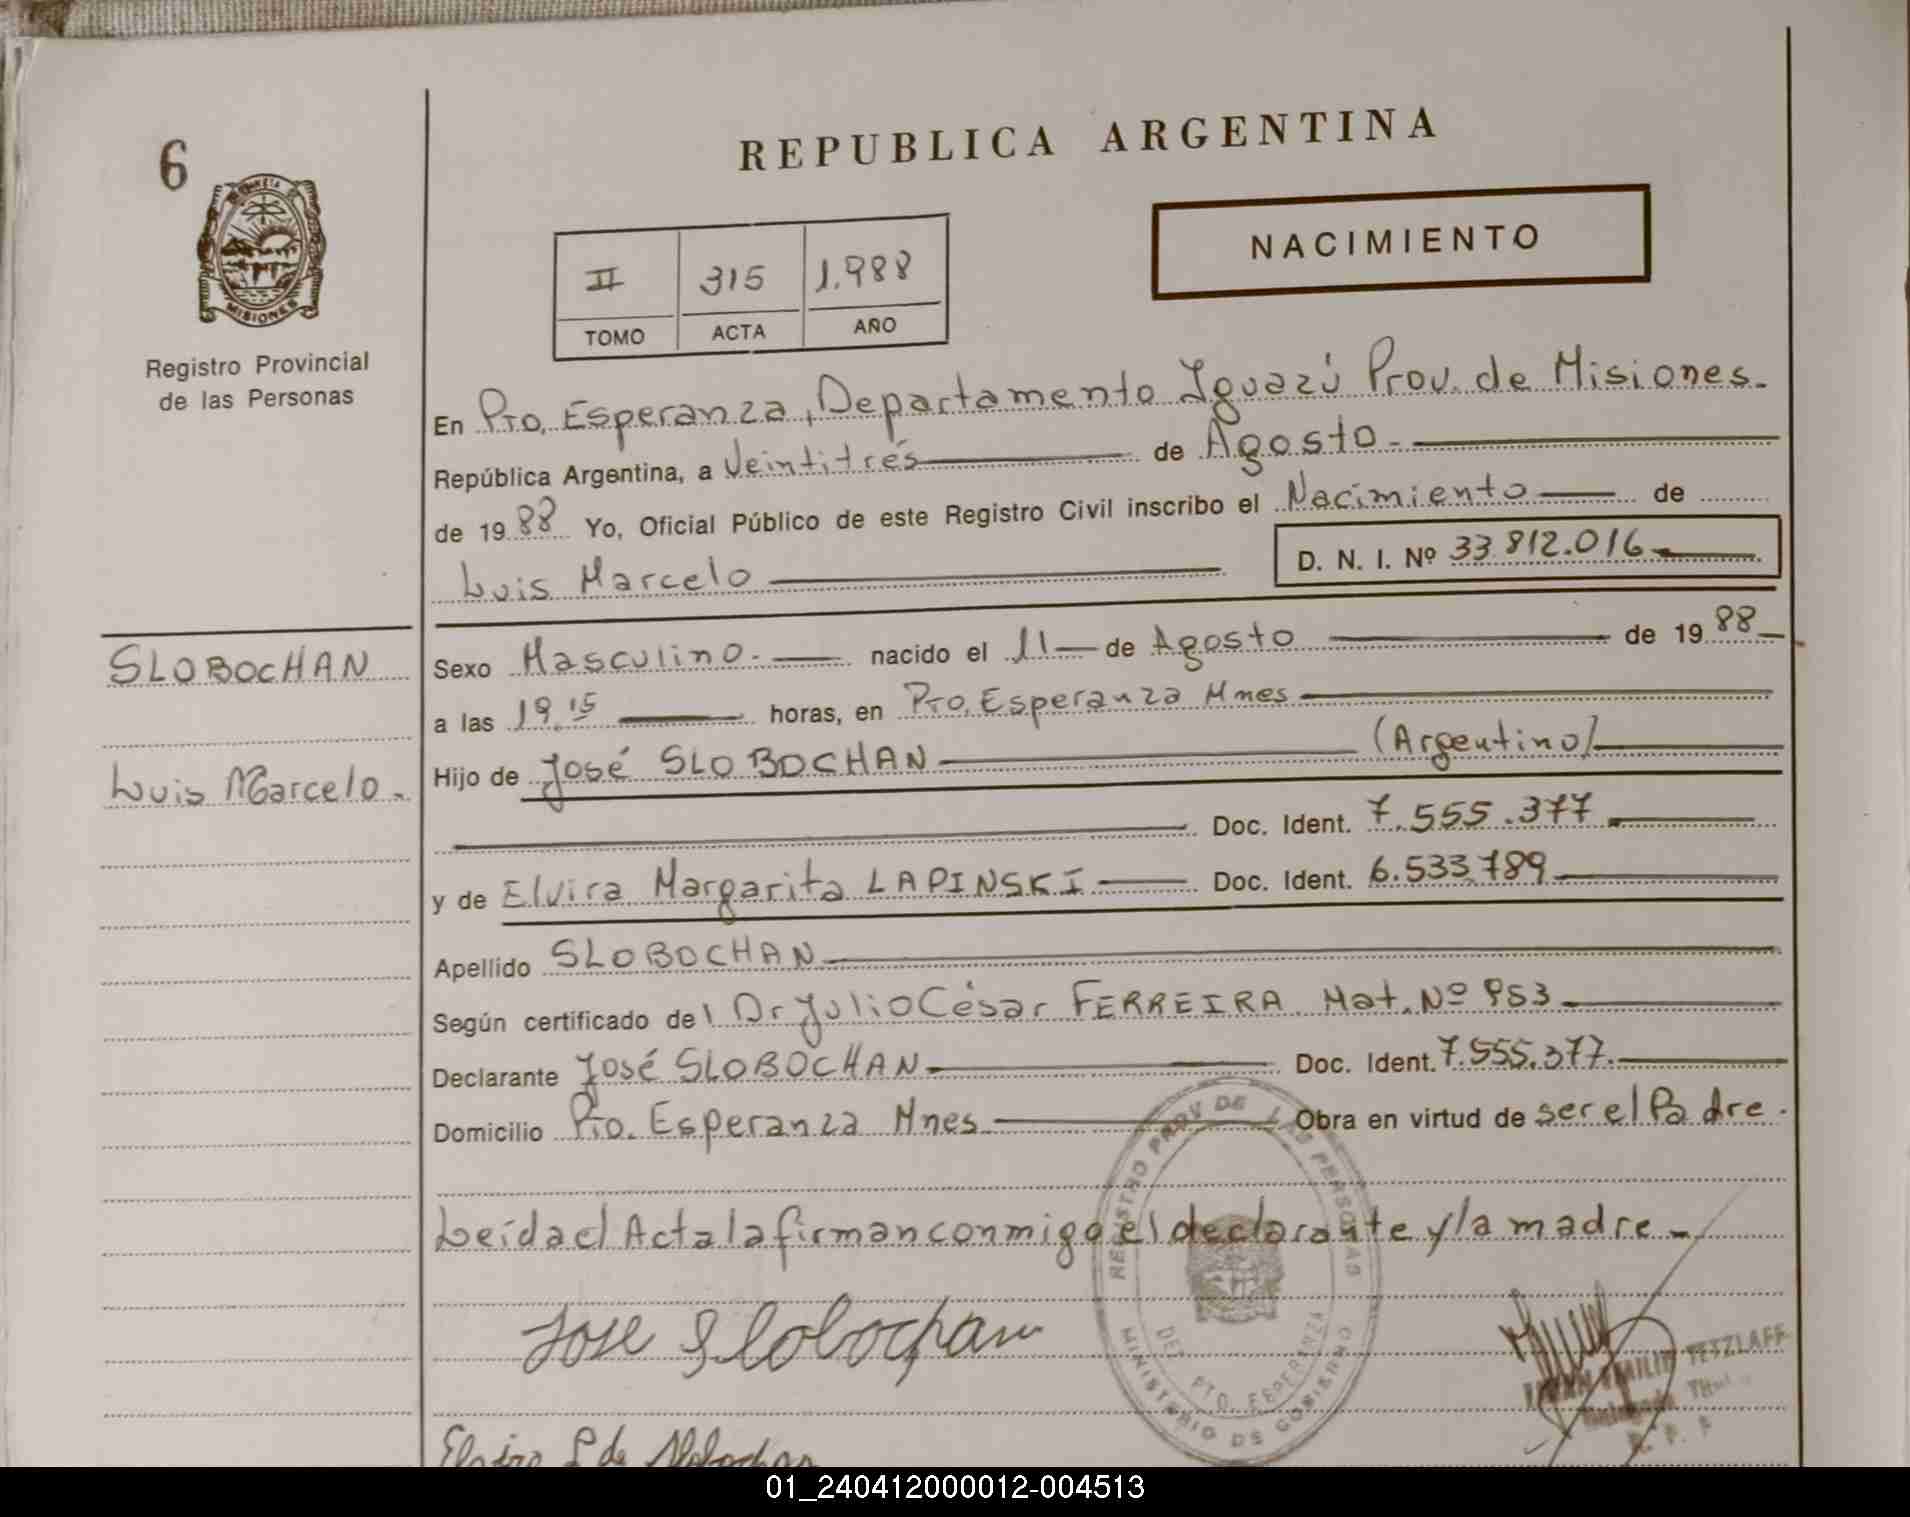 6
REPUBLICA ARGENTINA
NACIMIENTO
II 315 1.988
TOMO ACTA AÑO
MISIONES
Registro Provincial
de las Personas
En Pto. Esperanza, Departamento Iguazú Prov. de Misiones.
República Argentina, a Veintitrés de Agosto.
de 1988 Yo, Oficial Público de este Registro Civil inscribo el Nacimiento de
Luis Marcelo
D. N. I. Nº 33.812.016
SLOBOCHAN
Luis Marcelo.
Sexo Masculino. nacido el 11 de Agosto de 1988
a las 19.15 horas, en Pto. Esperanza Mnes
Hijo de José SLOBOCHAN (Argentino)
Doc. Ident. 7.555.377
y de Elvira Margarita LAPINSKI Doc. Ident. 6.533.789
Apellido SLOBOCHAN
Según certificado del Dr Julio César FERREIRA. Mat. Nº 953
Declarante José SLOBOCHAN Doc. Ident. 7.555.377.
Domicilio Pto. Esperanza Mnes Obra en virtud de ser el Padre.
Leída el Acta la firman conmigo el declarante y la madre.
REGISTRO PROV DE LAS PERSONAS
DEL. PTO. ESPERANZA
MINISTERIO DE GOBIERNO
Jose Slobochan
TETZLAFF
Elvira L de Slobochan
01_240412000012-004513